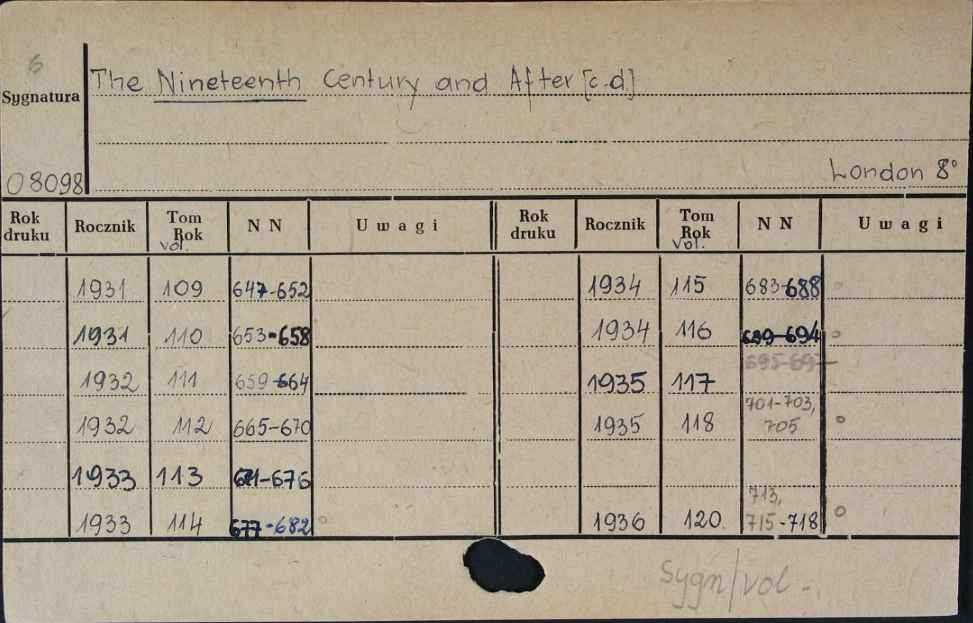 6
The Nineteenth Century and After [c.d.]
Sygnatura
London 8°
08098
Rok druku Rocznik Tom Rok vol. NN Uwagi Rok druku Rocznik Tom Rok vol. NN Uwagi
1931 109 647-652 1934 115 683-688 °
1931 110 653-658 1934 116 689-694 °
1932 111 659-664 1935 117 695-697
1932 112 665-670 1935 118 701-703, 705 °
1933 113 671-676
1933 114 677-682 ° 1936 120 713, 715-718 °
Sygn/vol-